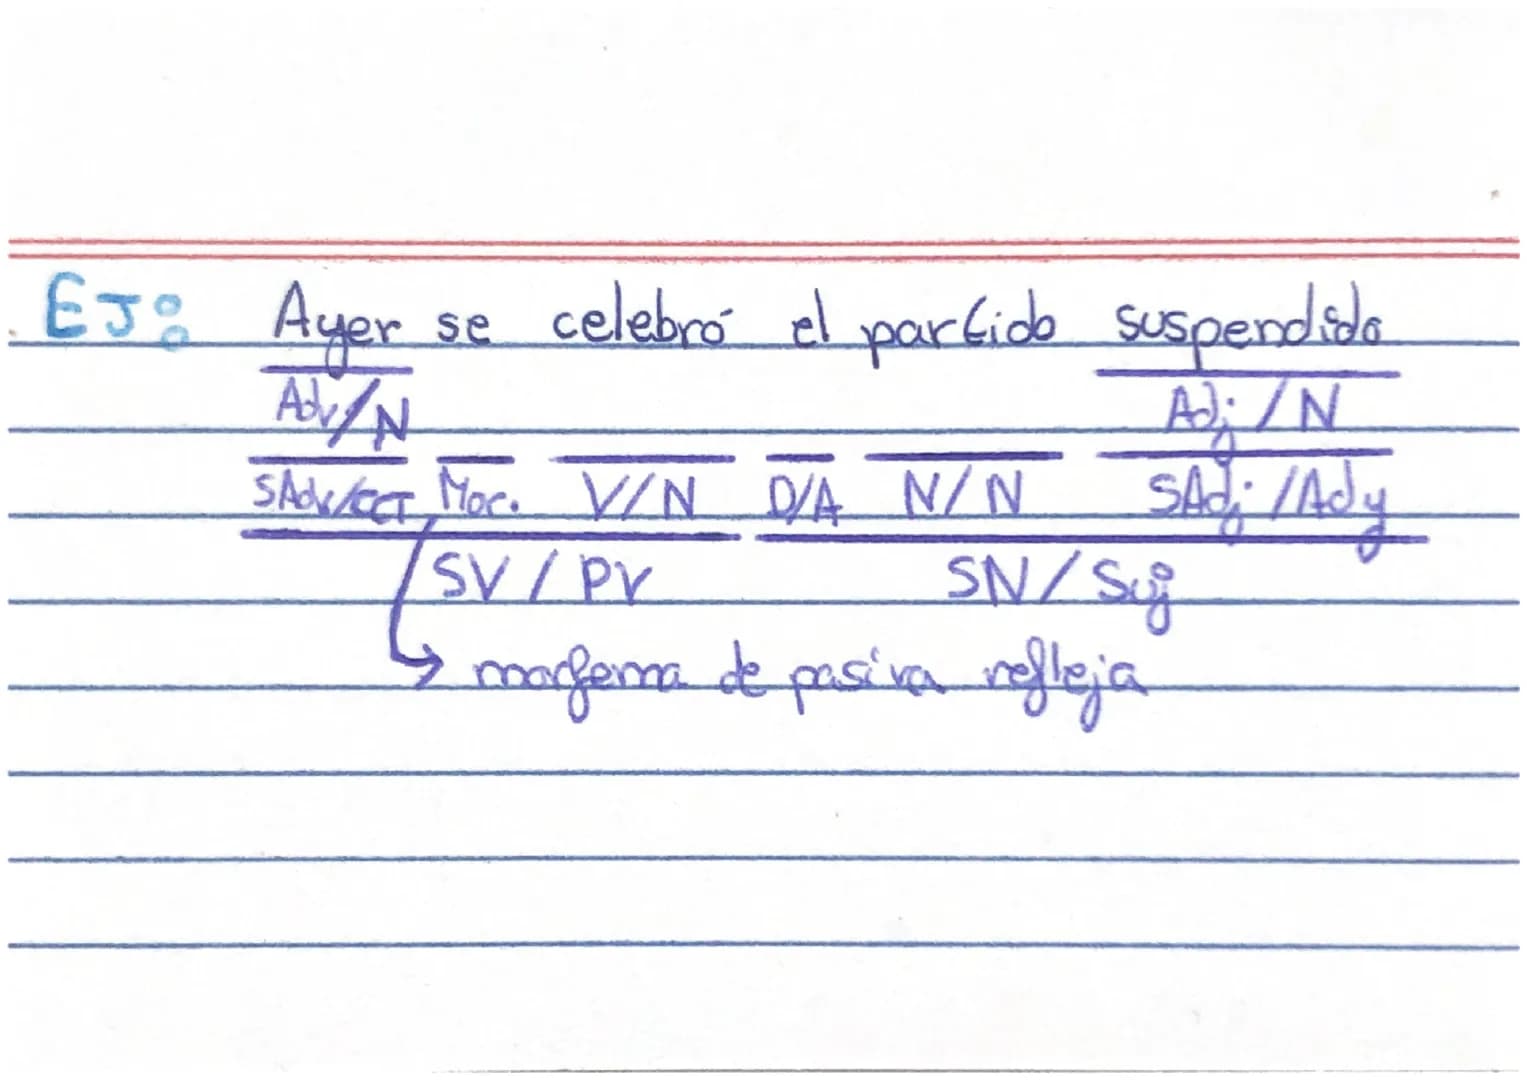 EJ: Ayer se celebró el partido suspendido
Adv/N Adj/N
SAdv/CCT Mor. V/N D/A N/N SAdj/Ady
SV/PV SN/Suj
morfema de pasiva refleja